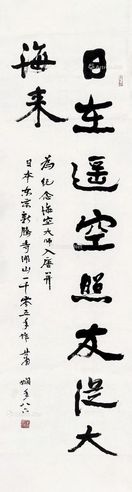 日在遥空照友从大
海来
为纪念海空大师入唐并
日本东京新胜寺开山一千零五年作 林
娴年八六